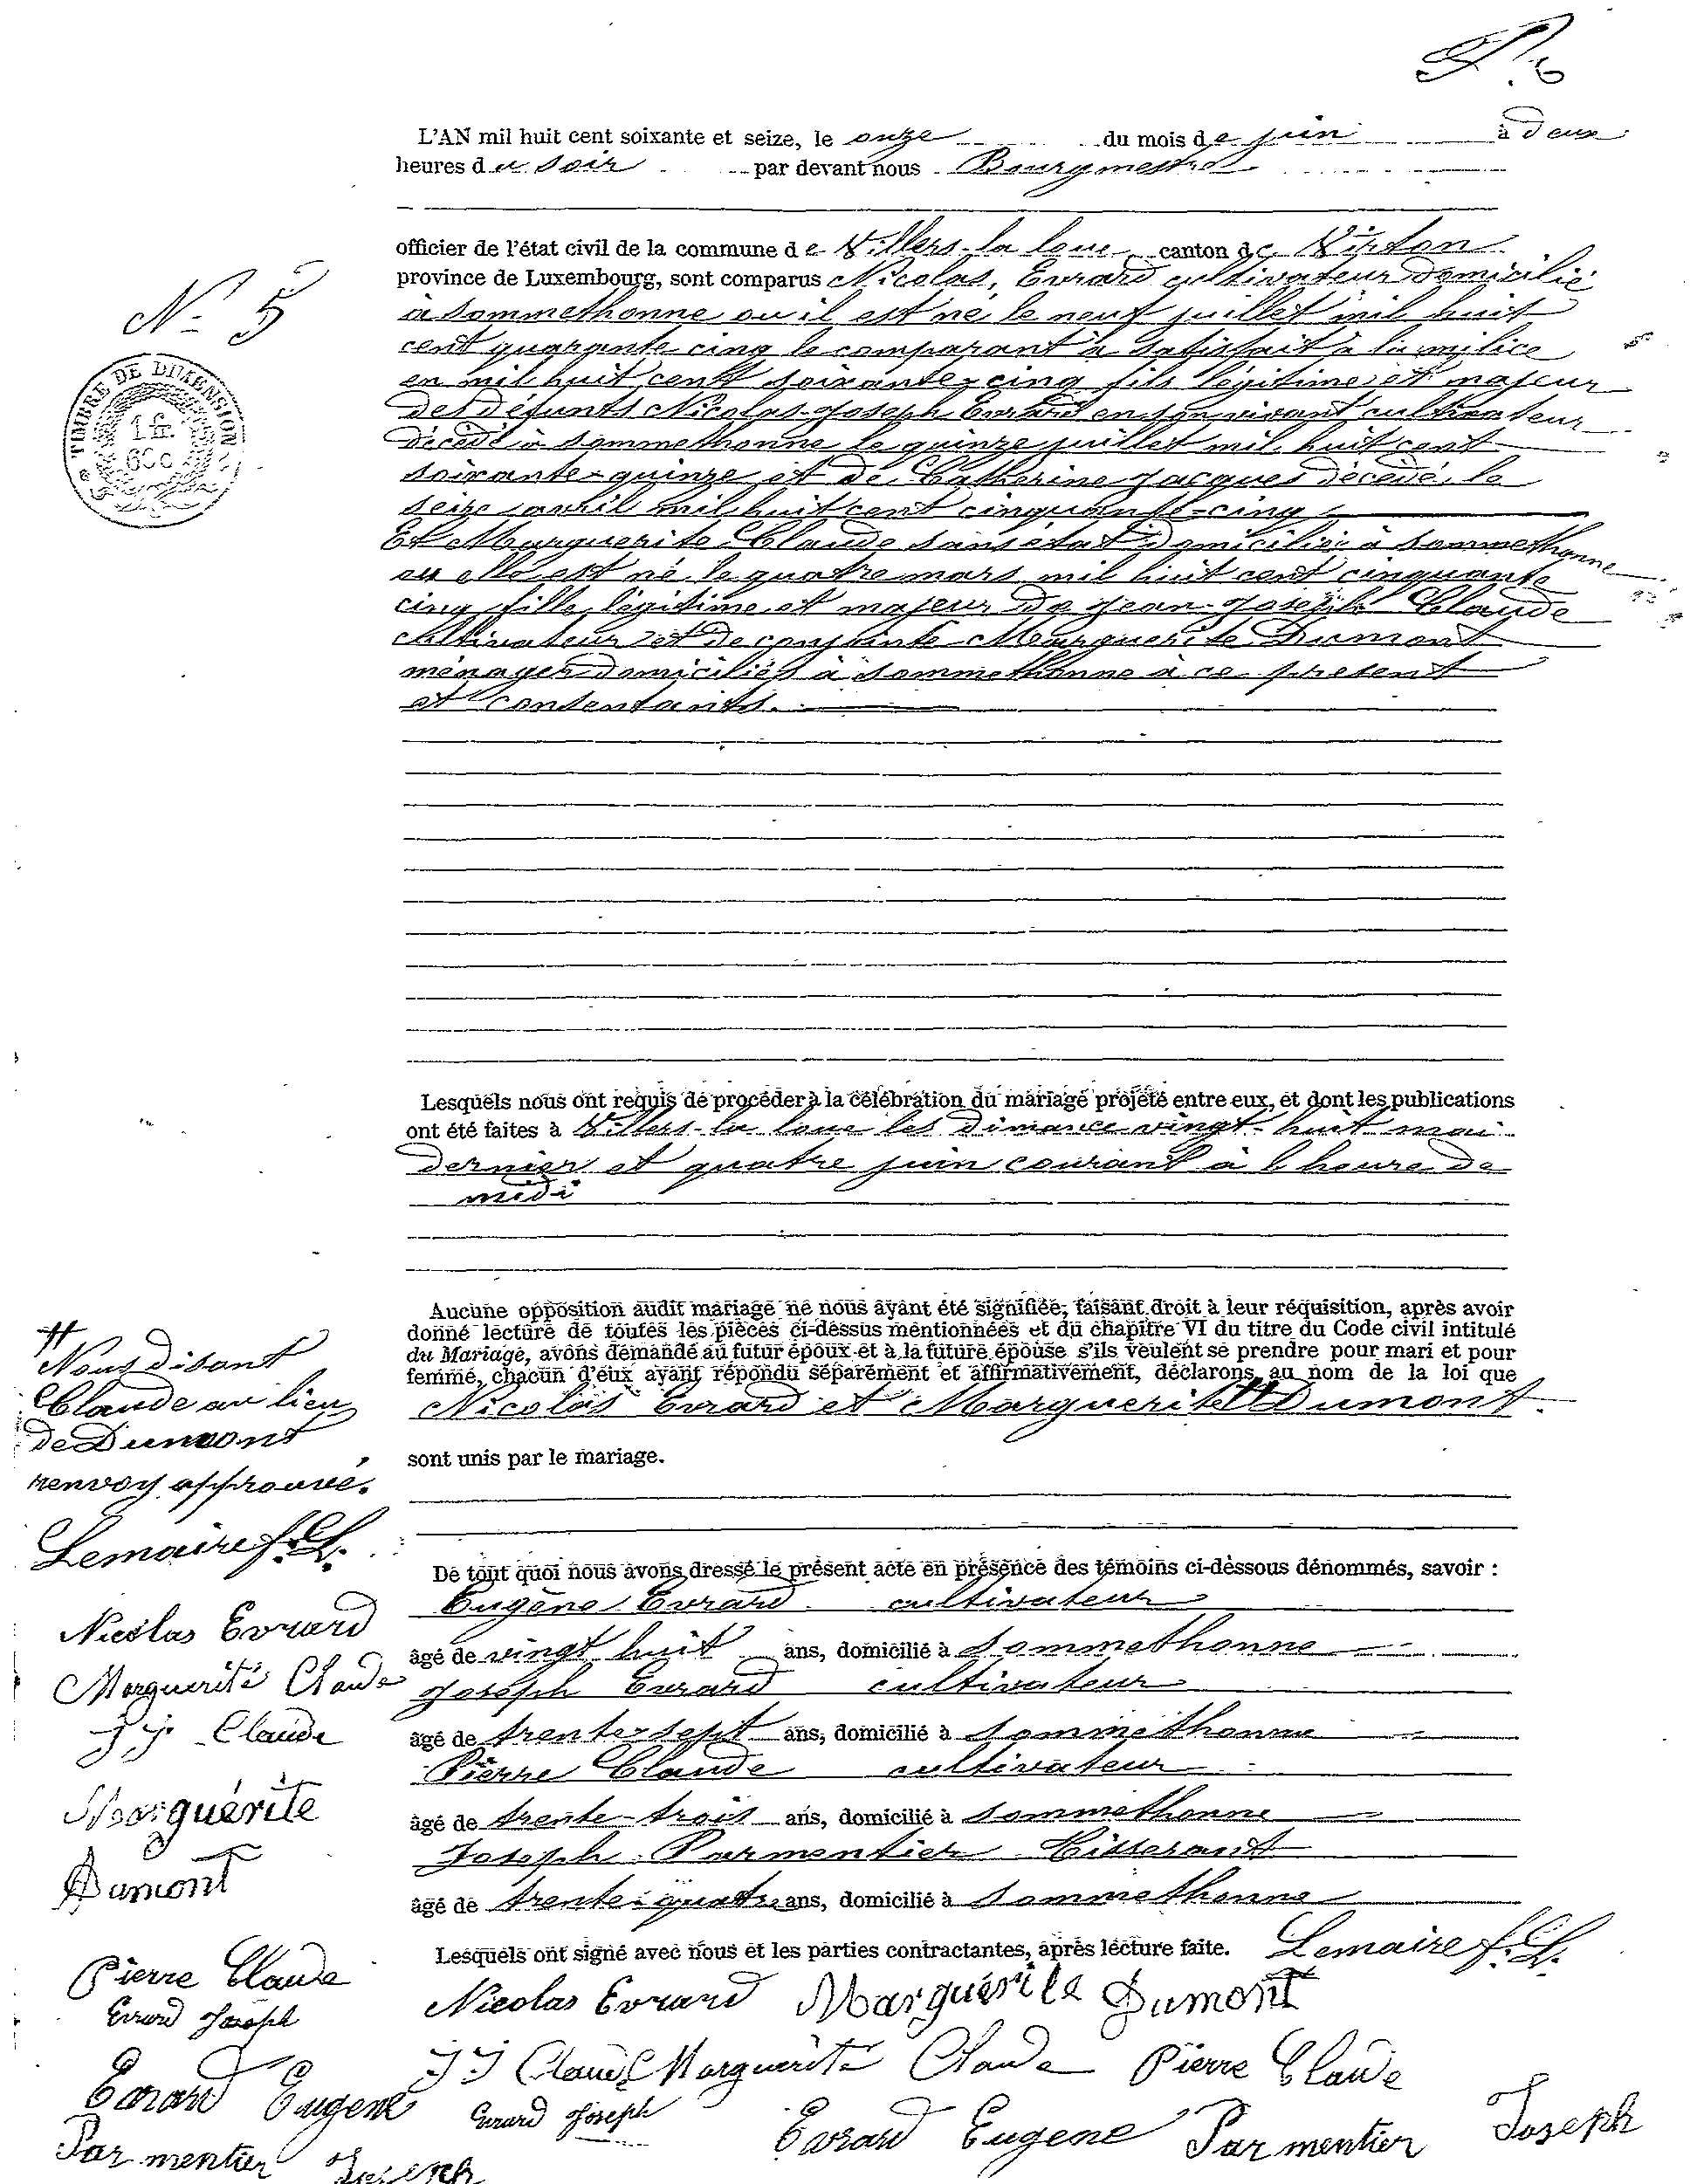 L'AN mil huit cent soixante et seize, le onze du mois de juin à deux
heures du soir par devant nous Bourgmestre
officier de l'état civil de la commune de Villers-la-loue canton de Virton
province de Luxembourg, sont comparus Nicolas, Evrard cultivateur domicilié
N° 5
à sommethonne ou il est né le neuf juillet mil huit
cent quarante cinq le comparant à satisfait à la milice
TIMBRE DE DIMENSION
1 fr.
60 c.
en mil huit cent soixante-cinq fils légitime et majeur
des défunts Nicolas-Joseph Evrard en son vivant cultivateur
décédé à sommethonne le quinze juillet mil huit cent
soixante-quinze et de Catherine Jacques décédé le
seize avril mil huit cent cinquante-cinq
Et Marguerite Claude sans état domiciliée à sommethonne
ou elle est né le quatre mars mil huit cent cinquante
cinq fille légitime et majeur de Jean-Joseph Claude
cultivateur et de conjointe Marguerite Dumont
ménager domiciliés à sommethonne à ce présent
et consentants.
Lesquels nous ont requis de procéder à la célébration du mariage projeté entre eux, et dont les publications
ont été faites à Villers-la loue les dimance vingt-huit mai
dernier et quatre juin courant à l heure de
midi
Aucune opposition audit mariage ne nous ayant été signifiée, faisant droit à leur réquisition, après avoir
donné lecture de toutes les pièces ci-dessus mentionnées et du chapitre VI du titre du Code civil intitulé
du Mariage, avons demandé au futur époux et à la future épouse s'ils veulent se prendre pour mari et pour
femme, chacun d'eux ayant répondu séparément et affirmativement, déclarons au nom de la loi que
Nicolas Evrard et Marguerite # Dumont.
sont unis par le mariage.
#
Nous disant
Claude au lieu
de Dumont
renvoy approuvé.
Lemaire f.
Nicolas Evrard
Marguerite Claude
J J Claude
Marguérite
Dumont
Pierre Claude
Evrard Joseph
Evrard Eugene
Parmentier Joseph
De tout quoi nous avons dressé le présent acte en présence des témoins ci-dessous dénommés, savoir :
Eugène Evrard cultivateur
âgé de vingt huit ans, domicilié à sommethonne
Joseph Evrard cultivateur
âgé de trente-sept ans, domicilié à sommethonne
Pierre Claude cultivateur
âgé de trente-trois ans, domicilié à sommethonne
Joseph Parmentier Tisserant
âgé de trente-quatre ans, domicilié à sommethonne
Lesquels ont signé avec nous et les parties contractantes, après lecture faite. Lemaire f.
Nicolas Evrard Marguérite Dumont
J J Claude Marguerite Claude Pierre Claude
Evrard Joseph Evrard Eugene Parmentier Joseph